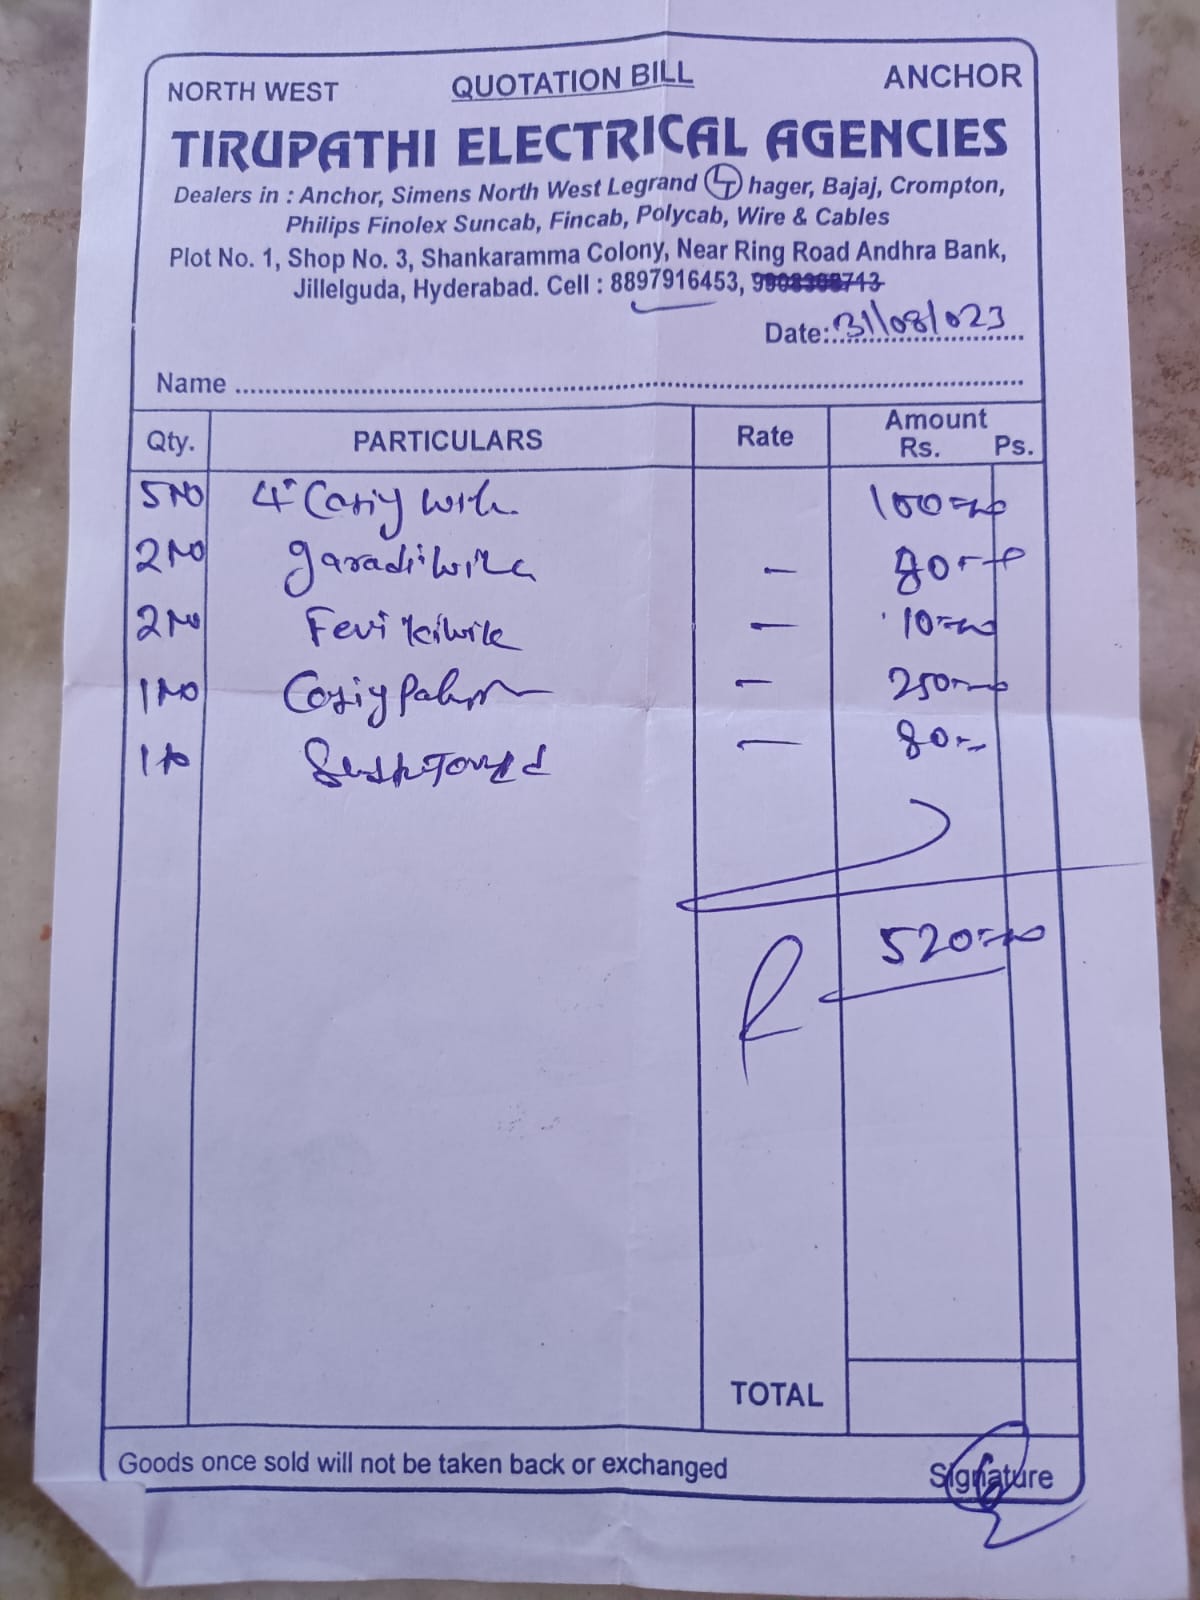 NORTH WEST QUOTATION BILL ANCHOR
TIRUPATHI ELECTRICAL AGENCIES
Dealers in : Anchor, Simens North West Legrand LT hager, Bajaj, Crompton,
Philips Finolex Suncab, Fincab, Polycab, Wire & Cables
Plot No. 1, Shop No. 3, Shankaramma Colony, Near Ring Road Andhra Bank,
Jillelguda, Hyderabad. Cell : 8897916453,
Date: 31/08/023
Name
Qty. PARTICULARS Rate Amount
Rs. Ps.
5 No 4" 100=00
2 No - 80
2 No Fevi kiwik - 10=00
1 No - 250=00
1 - 80
520=00
TOTAL
Goods once sold will not be taken back or exchanged
Signature